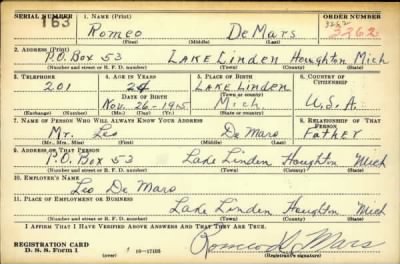 SERIAL NUMBER 1. NAME (Print) ORDER NUMBER
163 Romeo De Mars 3262 3262
(First) (Middle) (Last)
2. ADDRESS (Print)
P.O. Box 53 Lake Linden Houghton Mich
(Number and street or R. F. D. number) (Town) (County) (State)
3. TELEPHONE 4. AGE IN YEARS 5. PLACE OF BIRTH 6. COUNTRY OF CITIZENSHIP
201 24 Lake Linden
DATE OF BIRTH (Town or county)
Nov. 26-1915 Mich. U.S.A.
(Exchange) (Number) (Mo.) (Day) (Yr.) (State or country)
7. NAME OF PERSON WHO WILL ALWAYS KNOW YOUR ADDRESS 8. RELATIONSHIP OF THAT PERSON
Mr. Leo De Mars Father
(Mr., Mrs., Miss) (First) (Middle) (Last)
9. ADDRESS OF THAT PERSON
P.O. Box 53 Lake Linden Houghton Mich
(Number and street or R. F. D. number) (Town) (County) (State)
10. EMPLOYER'S NAME
Leo De Mars
11. PLACE OF EMPLOYMENT OR BUSINESS
Lake Linden Houghton Mich
(Number and street or R. F. D. number) (Town) (County) (State)
I AFFIRM THAT I HAVE VERIFIED ABOVE ANSWERS AND THAT THEY ARE TRUE.
REGISTRATION CARD
D. S. S. Form 1 (over) 16-17105
Romeo De Mars